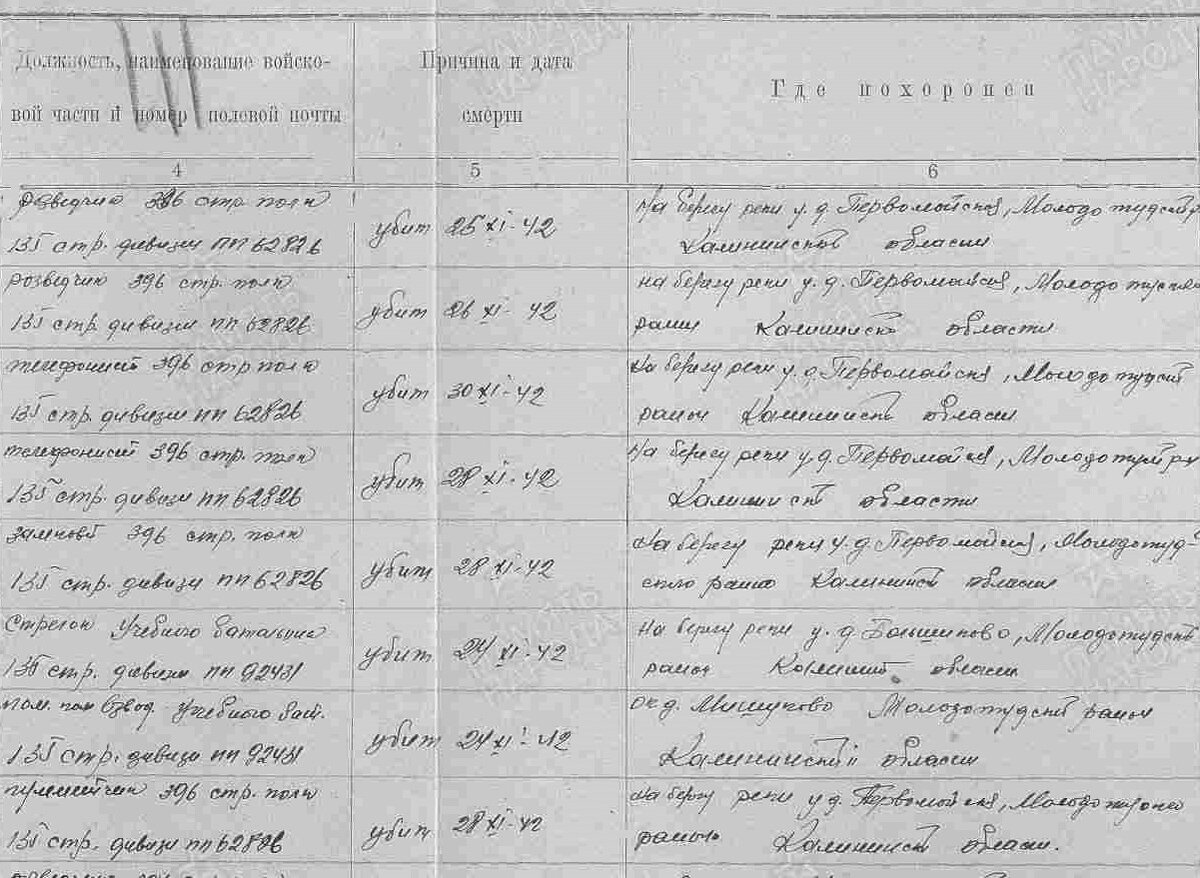 Должность, наименование войско-
вой части и номер полевой почты
Причина и дата
смерти
Где похоронен
4
5
6
розведчик 396 стр полк
135 стр. дивизии пп 62826
убит 25 XI-42
На берегу реки у. д. Первомайская, Молодотудск р
Калининской области
розведчик 396 стр. полк
135 стр. дивизии пп 62826
убит 26 XI-42
на берегу реки у. д. Первомайская, Молодотудск
район Калининск области
телефонист 396 стр полк
135 стр. дивизии пп 62826
убит 30 XI-42
На берегу реки у. д. Первомайская, Молодотудск
район Калининск области
телефонист 396 стр. полк
135 стр. дивизи пп 62826
убит 28 XI-42
На берегу реки у. д. Первомайская, Молодотуд р-н
Калининск области
396 стр. полк
135 стр. дивизи пп 62826
убит 28 XI-42
На берегу реки у. д. Первомайская, Молодотуд-
ского район Калининск области
Стрелок Учебного батальона
135 стр. дивизи пп 92431
убит 24 XI-42
На берегу реки у. д. Большиково, Молодотудск
район Калинин области
пом. ком взвод Учебного бат.
135 стр. дивизи пп 92431
убит 24 XI-42
ок д. Мишуково Молодотудский район
Калининский области
пулеметчик 396 стр. полк
135 стр. дивизи пп 62826
убит 28 XI-42
На берегу реки у д. Первомайская, Молодотудско
района Калининск области.